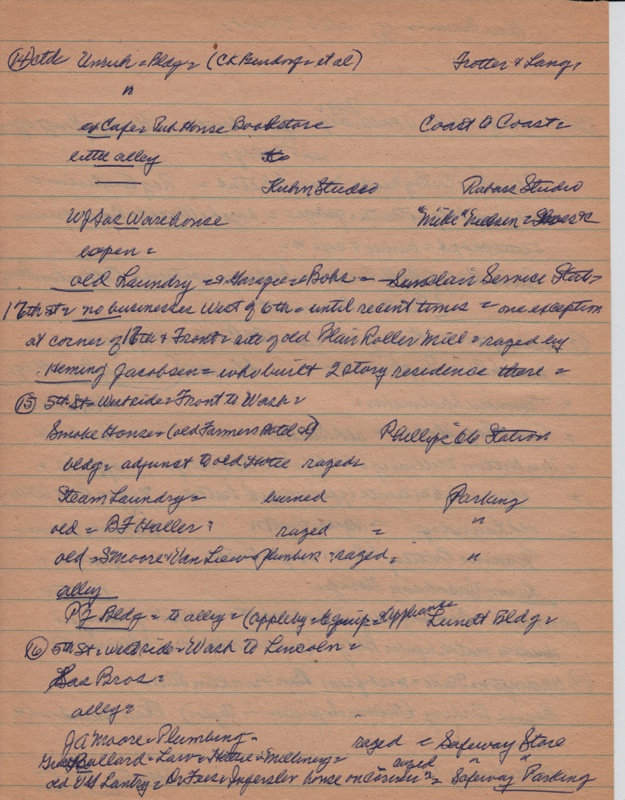 (14) ctd Unruh = Bldg = (CK Bendorf = et al) Trotter & Lang,
"
ex Cafe = Pub House Bookstore Coast to Coast =
little alley
Kuhn Studio Rabass Studio
WJSas Warehouse "Mike" Nielsen =
open =
old Laundry = Garage = Bobs = Sinclair Service Stat=
17th St = no businesses West of 6th = until recent times = one exception
at corner of 16th & Front = site of old Blair Roller Mill = razed by
Heming Jacobsen = who built 2 story residence there =
(15) 5th St = Westside = Front to Wash =
Smoke House = (old Farmers Hotel) Phillips 66 Station
bldg = adjunct to old Hotel razed=
Steam Laundry = burned Parking
old = BF Haller = razed = "
old = S Moore & Van Liew = Plumbers = razed, "
alley
PG Bldg = to alley = (Appleby = Equip = Appliance Lunett Bldg =
(16) 5th St = Westside = Wash to Lincoln =
Sas Bros =
alley =
JA Moore = Plumbing = razed = Safeway Store
Ballard = Law = Millinery = razed " "
old VG Lantry = Dr Fees = Ingersler house on corner = " = Safeway Parking